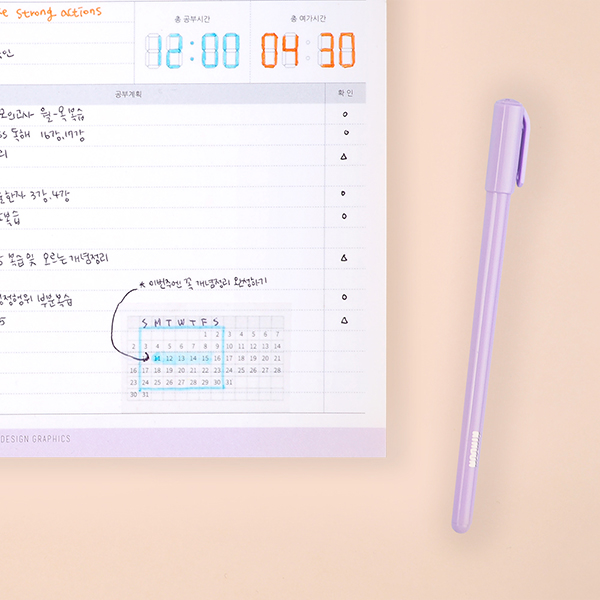 strong actions
총 공부시간 총 여가시간
12:00 04:30
인
공부계획 확 인
모의고사 월-목 복습 o
독해 16강, 17강 o
리 △
한자 3강, 4강 o
복습 o
복습 및 모르는 개념정리 △
정행위 부분복습 o
5 △
* 이번주엔 꼭 개념정리 완성하기
S M T W T F S
1 2 3 4 5 6 7
2 3 4 5 6 7 8 9 10 11 12 13 14
9 11 12 13 14 15 16 17 18 19 20 21
16 17 18 19 20 21 22 23 24 25 26 27 28
23 24 25 26 27 28 29 30 31
30 31
DESIGN GRAPHICS